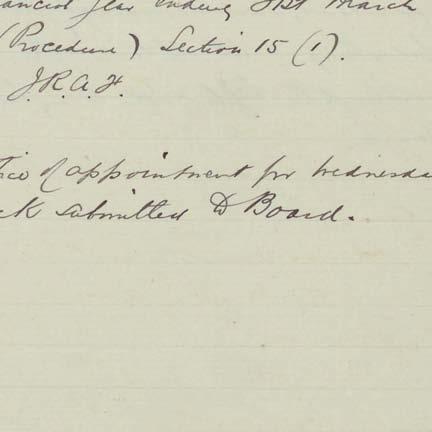 ancial year ending 31st March
(Procedure) Section 15 (1).
J.R.A.F.
tice of appointment for Wednesda
ck submitted to Board.